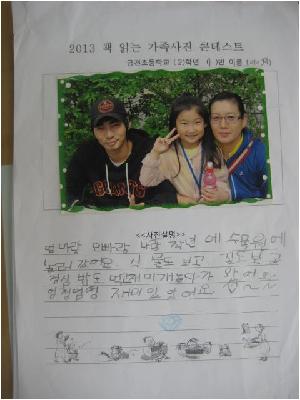 2013 책 읽는 가족사진 콘테스트
초등학교 (2)학년 ( )반 이름
GIANTS
<<사진설명>>
엄마랑 오빠랑 나랑 작년에 수목원에
놀러 갔어요 식물도 보고
점심 밥도 먹고 재미
엄청엄청 재미있었어요